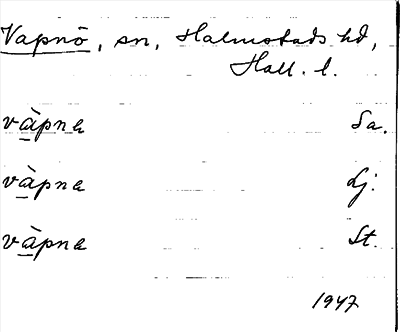 Vapnö, sn, Halmstads hd,
Hall. l.
và̱pnɐ Sa.
và̱pnɐ Lj.
và̱pnɐ St.
1947